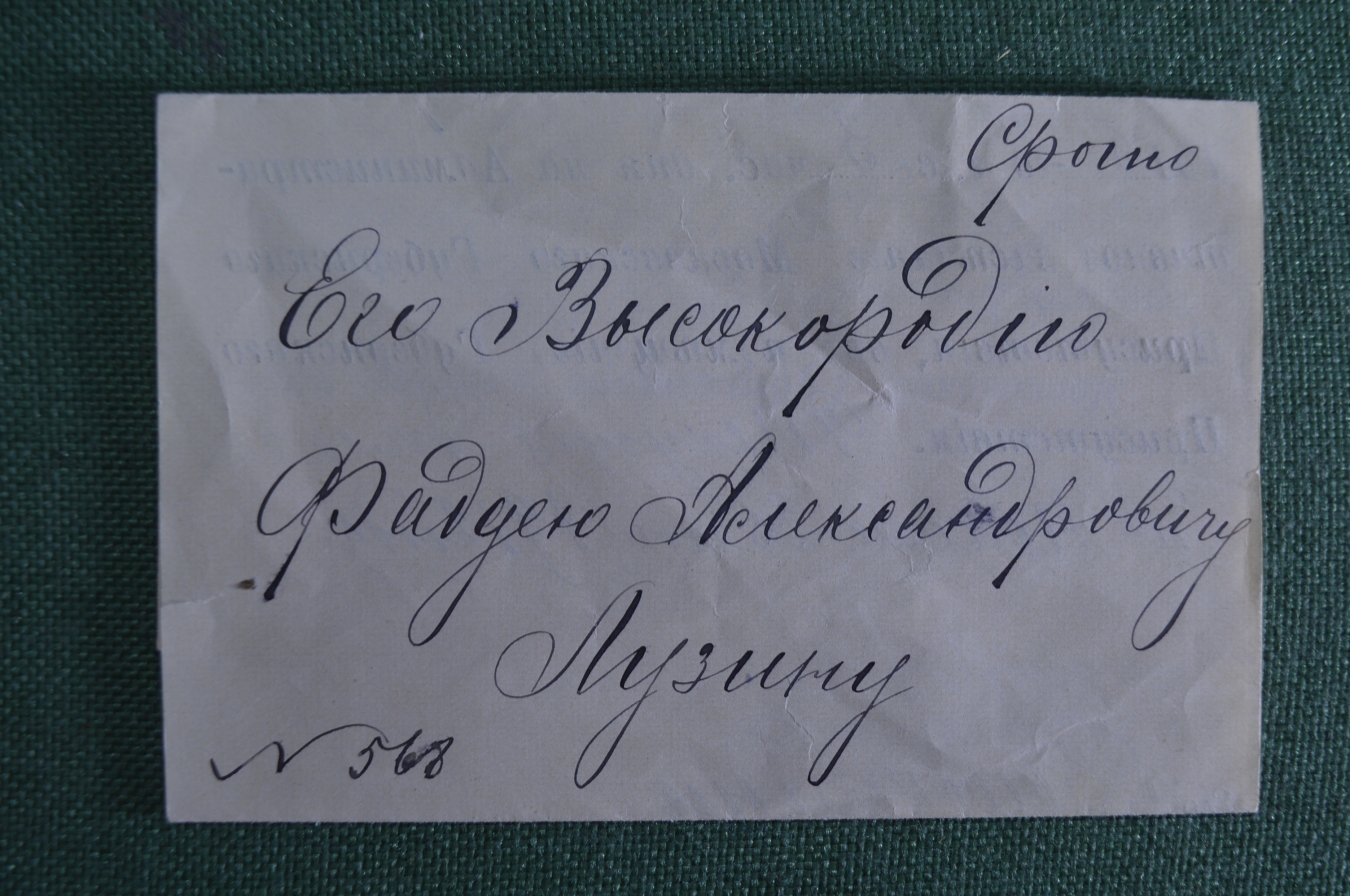 Срочно
Его Высокородію
Фаддею Александровичу
Лузину
N 568